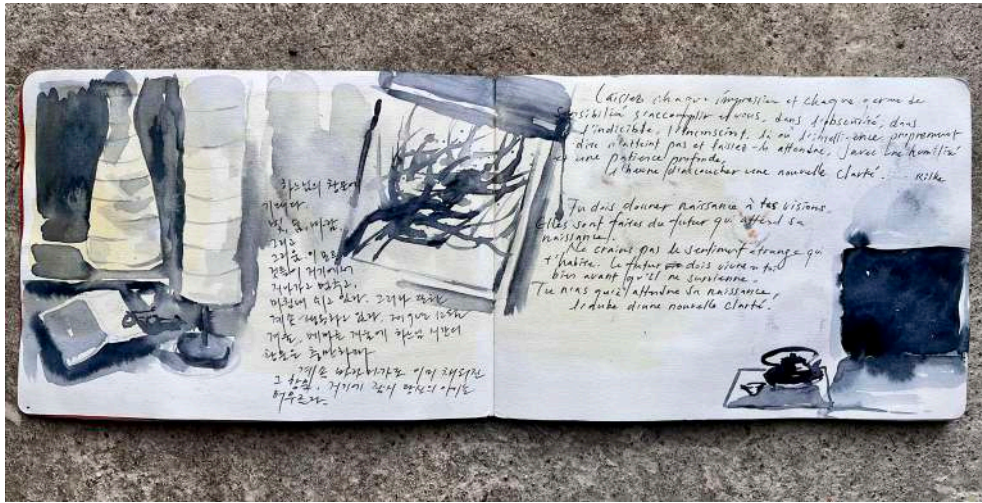 하느님의 창문에
기대다.
빛, 물, 바람
그리고
그리움 이 모든
것들이 거기에서
지나가고 멈추고,
마침내 쉬고 있다. 그러나 또한
계속 하고 있다.
겨울, 겨울에 하느님
충만하다
계속 이미 채워진
그 거기에 잠시 당신의
Laissez chaque impression et chaque germe de
sensibilité s'accomplir en vous, dans l'obscurité, dans
l'indicible, l'inconscient, là où l'intelligence proprement
dite n'atteint pas et laissez-les attendre, avec une humilité
et une patience profonde,
l'heure d'accoucher une nouvelle clarté. -- Rilke
Tu dois donner naissance à tes visions.
Elles sont faites du futur qui attend sa
naissance.
Ne crains pas le sentiment étrange qui
t'habite. Le futur dois vivre en toi
bien avant qu'il ne survienne.
Tu n'as qu'à attendre la naissance,
l'aube d'une nouvelle clarté.